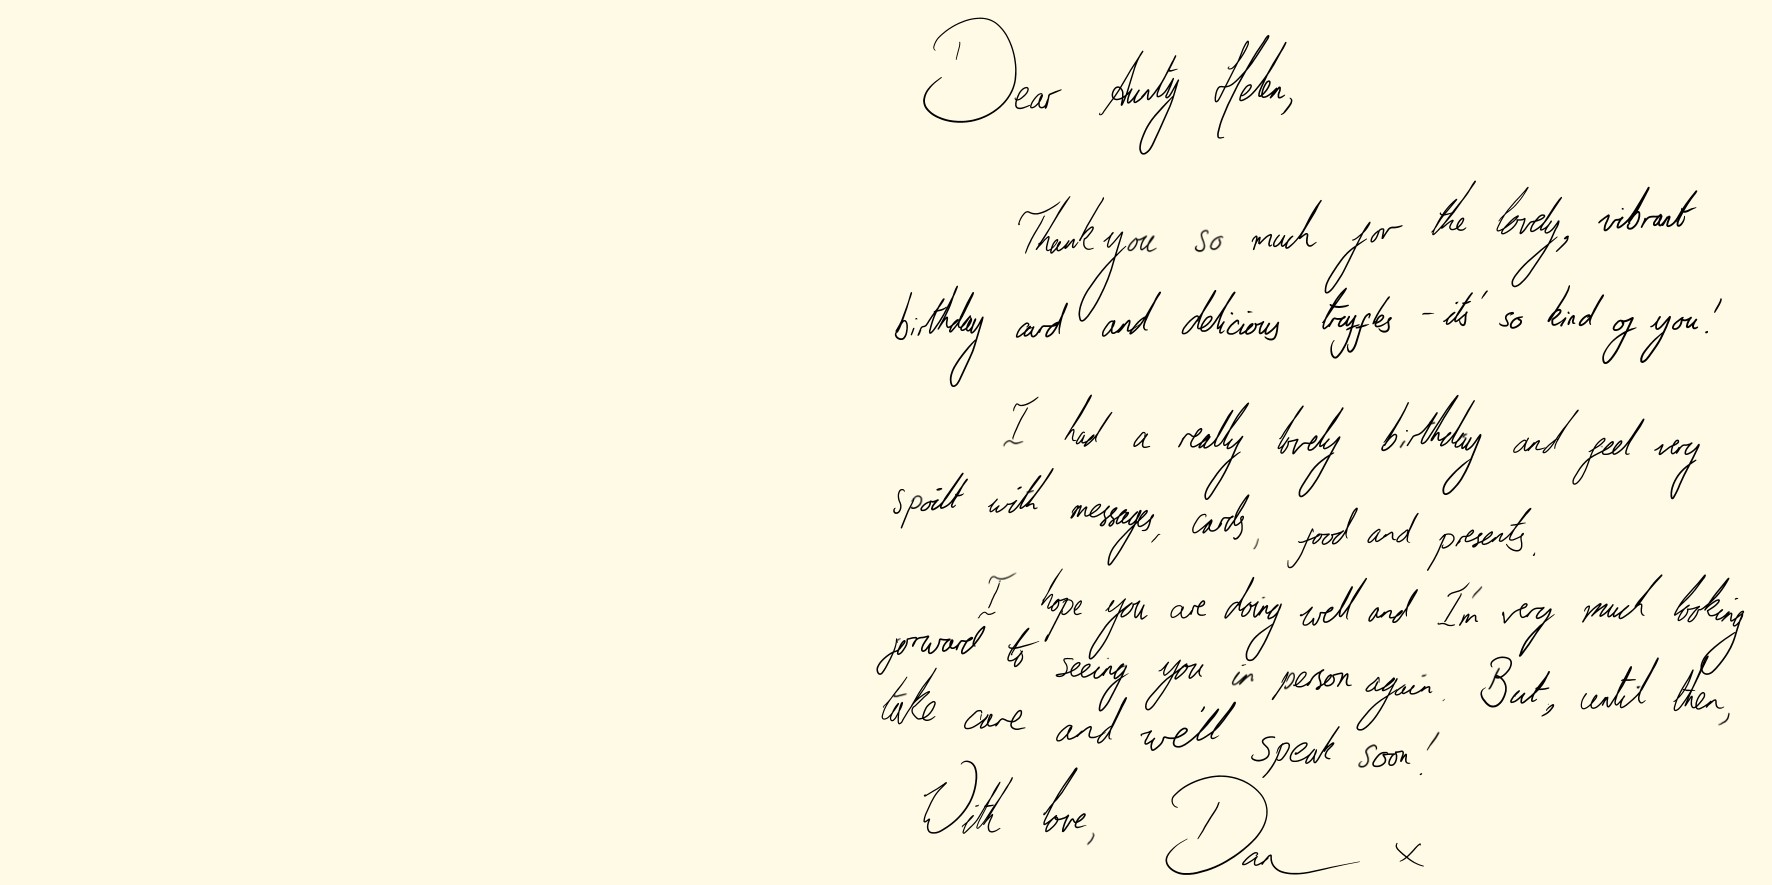 Dear Aunty Helen,
Thank you so much for the lovely, vibrant
birthday card and delicious truffles - it's so kind of you!
I had a really lovely birthday and feel very
spoilt with messages, cards, food and presents.
I hope you are doing well and I'm very much looking
forward to seeing you in person again. But, until then,
take care and we'll speak soon!
With love, Dan x